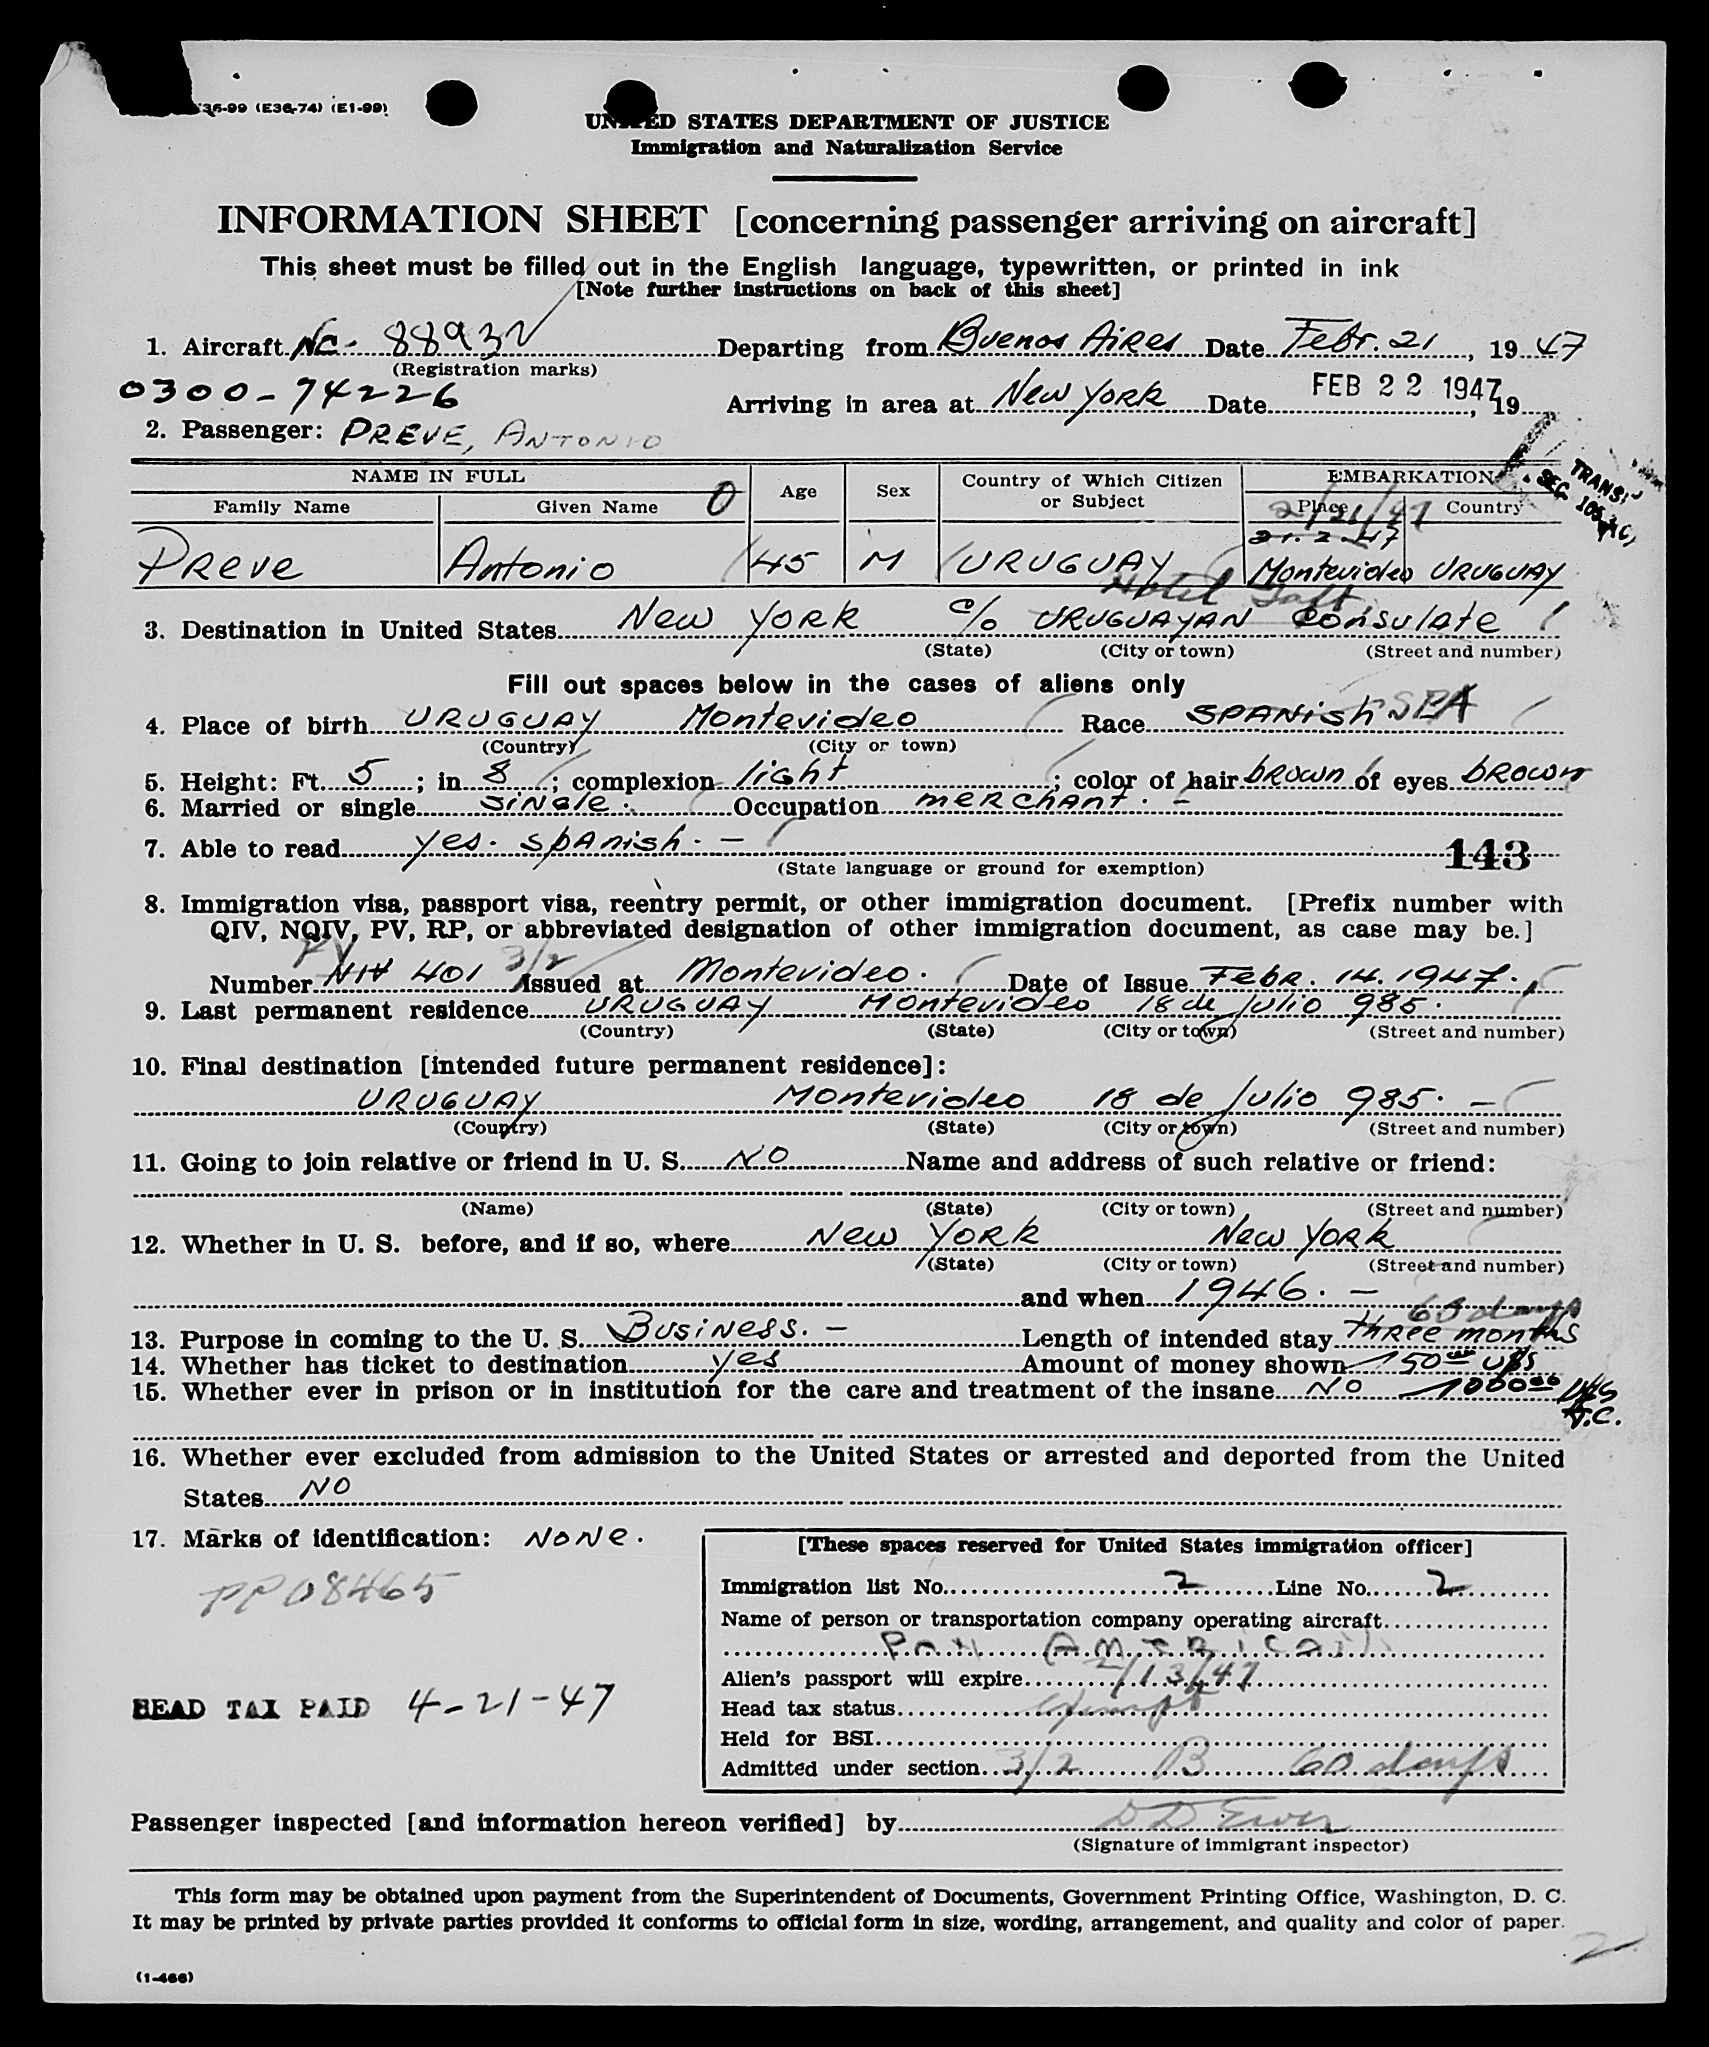 36-99 (E36-74) (E1-99)
UNITED STATES DEPARTMENT OF JUSTICE
Immigration and Naturalization Service
INFORMATION SHEET [concerning passenger arriving on aircraft]
This sheet must be filled out in the English language, typewritten, or printed in ink
[Note further instructions on back of this sheet]
1. Aircraft NC- 8893 Departing from Buenos Aires Date Febr. 21, 1947
(Registration marks)
0300-74226
Arriving in area at New York Date FEB 22 1947, 19
2. Passenger: PREVE, ANTONIO
NAME IN FULL Age Sex Country of Which Citizen or Subject EMBARKATION
TRANS.
SEC. 105
Family Name Given Name O Place Country
2/21/47
21.2.47
PREVE Antonio 45 M URUGUAY Montevideo URUGUAY
Hotel Taft
3. Destination in United States New York c/o URUGUAYAN Consulate
(State) (City or town) (Street and number)
Fill out spaces below in the cases of aliens only
4. Place of birth URUGUAY Montevideo Race SPANish SPA
(Country) (City or town)
5. Height: Ft. 5; in 8; complexion light; color of hair brown of eyes brown
6. Married or single single. Occupation merchant. -
7. Able to read yes. spanish. -
(State language or ground for exemption) 143
8. Immigration visa, passport visa, reentry permit, or other immigration document. [Prefix number with
QIV, NQIV, PV, RP, or abbreviated designation of other immigration document, as case may be.]
PV 3/2
Number 401 Issued at Montevideo. Date of Issue Febr. 14. 1947.
9. Last permanent residence URUGUAY Montevideo 18 de Julio 985.
(Country) (State) (City or town) (Street and number)
10. Final destination [intended future permanent residence]:
URUGUAY Montevideo 18 de Julio 985. -
(Country) (State) (City or town) (Street and number)
11. Going to join relative or friend in U. S. NO Name and address of such relative or friend:
(Name) (State) (City or town) (Street and number)
12. Whether in U. S. before, and if so, where New York New York
(State) (City or town) (Street and number)
and when 1946. -
60 days
13. Purpose in coming to the U. S. Business. - Length of intended stay three months
14. Whether has ticket to destination yes Amount of money shown 150
15. Whether ever in prison or in institution for the care and treatment of the insane NO 1000
16. Whether ever excluded from admission to the United States or arrested and deported from the United
States NO
17. Marks of identification: NONE.
PP 08465
HEAD TAX PAID 4-21-47
[These spaces reserved for United States immigration officer]
Immigration list No. 2 Line No. 2
Name of person or transportation company operating aircraft
PAN AMERICAN
Alien's passport will expire 2/13/47
Head tax status exempt
Held for BSI
Admitted under section 3/2 B 60 days
Passenger inspected [and information hereon verified] by
(Signature of immigrant inspector)
This form may be obtained upon payment from the Superintendent of Documents, Government Printing Office, Washington, D. C.
It may be printed by private parties provided it conforms to official form in size, wording, arrangement, and quality and color of paper.
2
(1-466)